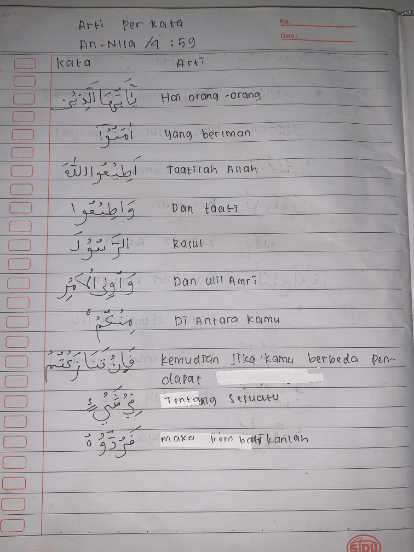 Arti per kata
No.
An-Nisa /4 : 59
Date:
Kata Arti
يَٰٓأَيُّهَا الَّذِيْنَ Hai orang-orang
اٰمَنُوْٓا Yang beriman
اَطِيْعُوا اللّٰهَ Taatilah Allah
وَاَطِيْعُوا Dan taati
الرَّسُوْلَ Rasul
وَاُولِى الْاَمْرِ Dan ulil Amri
مِنْكُمْ Di Antara kamu
فَاِنْ تَنَازَعْتُمْ kemudian jika kamu berbeda pen-
dapat
فِيْ شَيْءٍ Tentang Sesuatu
فَرُدُّوْهُ maka kembalikanlah
SIDU